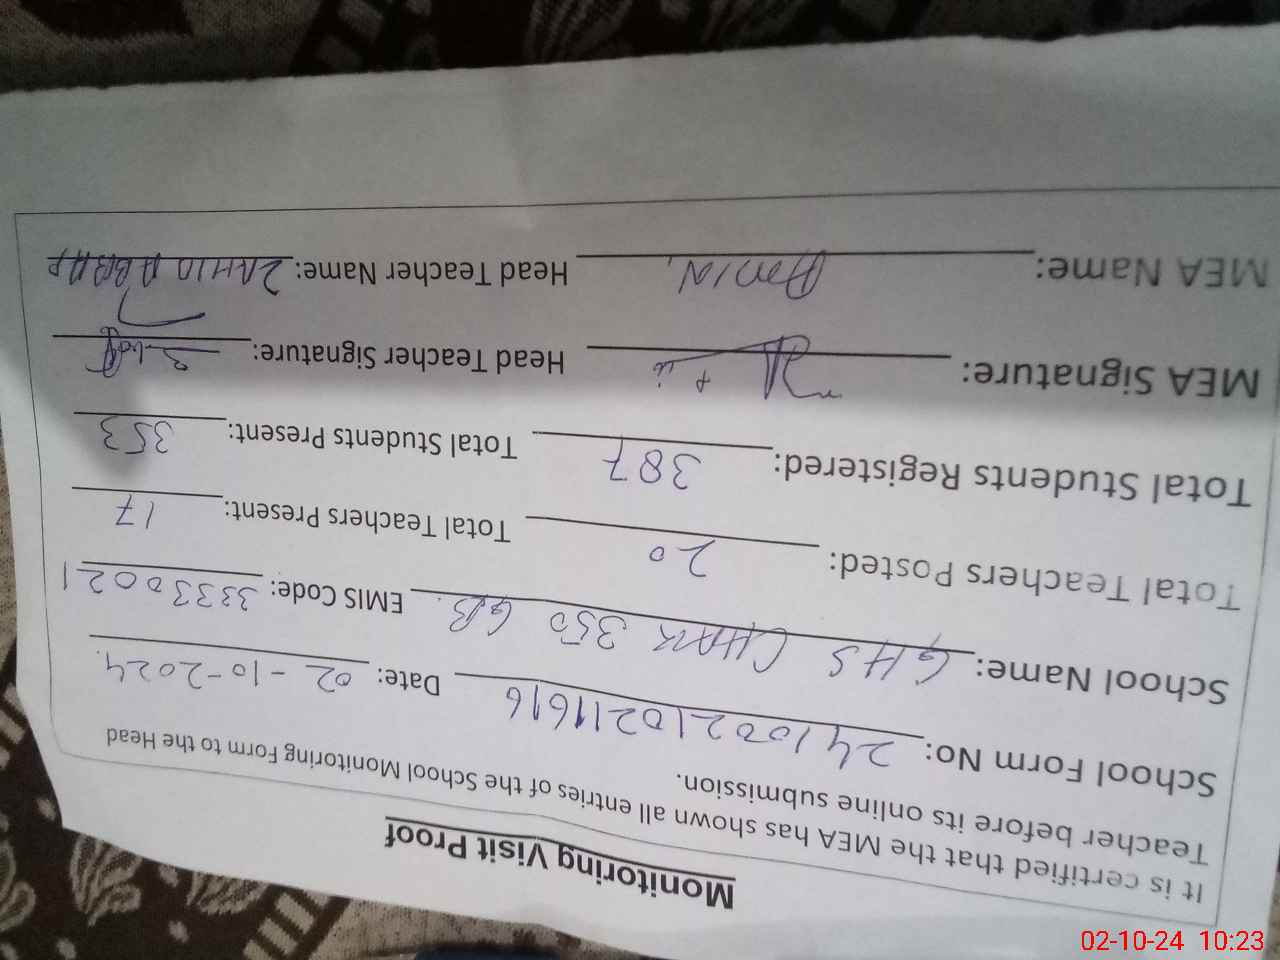 Monitoring Visit Proof
It is certified that the MEA has shown all entries of the School Monitoring Form to the Head
Teacher before its online submission.
School Form No: 241002102111616 Date: 02-10-2024.
School Name: GHS CHAK 350 GB. EMIS Code: 33330021
Total Teachers Posted: 20 Total Teachers Present: 17
Total Students Registered: 387 Total Students Present: 353
MEA Signature: Head Teacher Signature:
MEA Name: AMIN, Head Teacher Name: ZAHID ABBAS
02-10-24 10:23